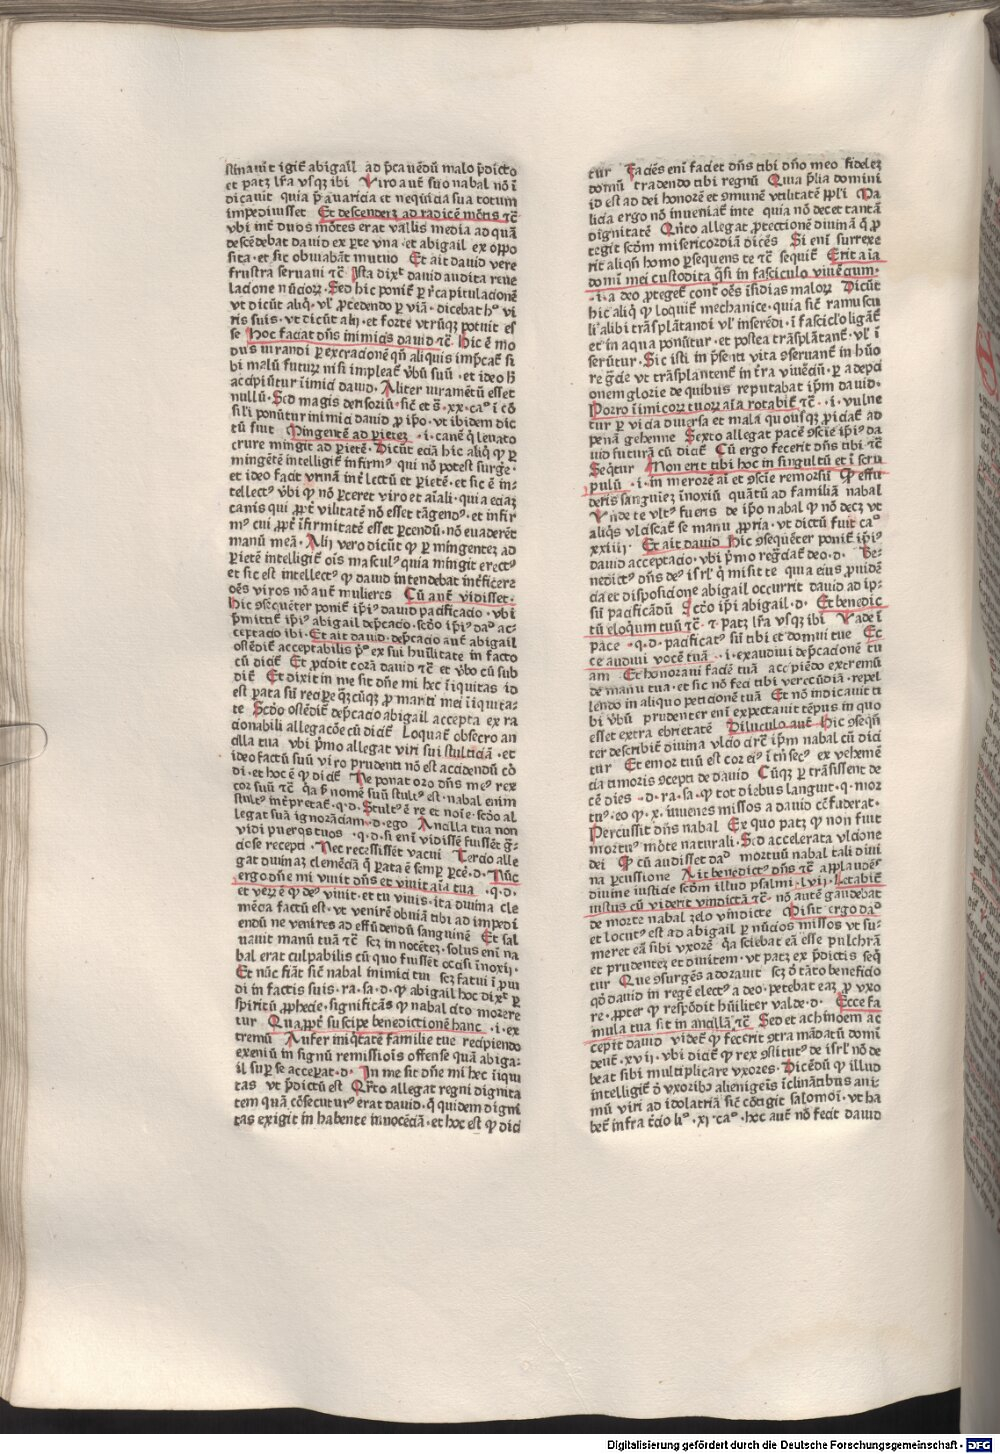 stinauit igit̃ abigail ad p̃cauẽdũ malo p̃dicto
et patꝫ lr̃a vsqꝫ ibi Viro aut̃ suo nabal nõ ĩ
dicauit quia p̃ auaricia et nequicia sua totum
impediuisset Et descenderꝫ ad radicẽ mõtis ⁊c̃
vbi int̃ duos mõtes erat vallis media ad quã
descẽdebat dauid ex ꝑte vna · et abigail ex oppo
sita · et sic obuiabãt mutuo Et ait dauid vere
frustra seruaui ⁊c̃ Ista dix̃t dauid audita reue
lacione nũcioꝝ · Sed hic ponit̃ ꝑ r̃capitulacionẽ
vt dicũt aliq̃ · vl̃ ꝓcedendo ꝑ viã · dicebat hͦ vi
ris suis · vt dicũt alij · et forte vtrũqꝫ potuit es
se Hoc faciat dñs inimicis dauid ⁊c̃ Hic ẽ mo
dus iurandi ꝑ execracionẽ qñ aliquis imp̃cat̃ si
bi malũ futuꝝ nisi impleat̃ v̓bũ suũ · et ideo h̃
accipiũtur ĩimici dauid · Aliter iuramẽtũ esset
nullũ · Sed magis derisoriũ · sic̃ et s̃ · xx · caͦ ĩ cõ
sil̃i ponũtur inimici dauid ꝓ ip̃o · vt ibidem dic
tũ fuit Mingentẽ ad ꝑietẽ · i · canẽ q̃ leuato
crure mingit ad ꝑietẽ · Dicũt eciã hic aliq̃ ꝙ ꝑ
mingẽtẽ intelligit̃ infirmꝰ qui nõ potest surge̓ ·
et ideo facit vrinã int̃ lectũ et ꝑietẽ · et sic ẽ in ·
tellectꝰ v̓bi ꝙ nõ ꝑceret viro et aĩali · quia eciaꝫ
canis qui ꝓpt̃ vilitatẽ nõ esset tãgendꝰ · et infir
mꝰ cui ꝓpt̃ ĩfirmitatẽ esset ꝑcendũ · nõ euaderẽt
manũ meã · Alij vero dicũt ꝙ ꝑ mĩngentez ad
ꝑietẽ intelligit̃ oĩs masculꝰ quia mingit erectꝰ
et sic est intellectꝰ ꝙ dauid intendebat int̃ficere
oẽs viros nõ aut̃ mulieres Cũ aut̃ vidisset ·
Hic ꝯsequẽter ponit̃ ip̃iꝰ dauid pacificacio · vbi
p̃mittit̃ ip̃iꝰ abigail dep̃cacio · sc̃do ip̃iꝰ da͡ᵈ ac ·
ceptacio ibi · Et ait dauid · dep̃cacio aut̃ abigail
ostẽdit̃ acceptabilis p̃ͦ ex sui hũilitate in facto
cũ dicit̃ Et ꝓcidit corã dauid ⁊c̃ et v̓bo cũ sub
dit̃ Et dixit in me sit dñe mi hec ĩiquitas id
est ꝑata sũ recipe̓ q̃ꝫcũqꝫ ꝓ mariti mei ĩiquita ·
te Sc̃do ostẽdit̃ dep̃cacio abigail accepta ex ra
cionabili allegacõe cũ dicit̃ Loquat̃ obsecro an
cilla tua vbi p̃mo allegat viri sui stulticiã · et
ideo factũ suũ viro prudenti nõ est accidendũ cõ
di · et hoc ẽ ꝙ dicit̃ Ne ponat oro dñs meꝰ rex
cor suũ ⁊c̃ q̃a p̃ nomẽ suũ stultꝰ est · nabal enim
stultꝰ int̃pretat̃ · q · d · Stultꝰ ẽ re et noĩe · sc̃do al
legat suã ignorãciam · d · ego Ancilla tua non
vidi pueros tuos · q · d · si em̃ vidissẽ fuissẽt g̃ ·
ciose recepti · Nec recessissẽt vacui Tercio alle
gat diuinaꝫ clemẽciã q̃ ꝑata ẽ semꝑ ꝑce̓ · d · Nũc
ergo dñe mi viuit dñs et viuit aĩa tua · q · d ·
et verꝝ ẽ ꝙ deꝰ viuit · et tu viuis · ita diuina cle
mẽcia factũ est · vt venirẽ obuiã tibi ad impedi
endũ ne venires ad effũdendũ sanguinẽ Et sal
uauit manũ tuã ⁊c̃ seꝫ innocẽteꝫ · solus em̃ na
bal erat culpabilis cũ quo fuissẽt occisi ĩnoxij ·
Et nũc fiãt sic̃ nabal inimici tui seꝫ fatui ĩ pui
di in factis suis · ra · sa · d · ꝙ abigail hoc dix̃t ꝑ
spiritũ ꝓphecie · significãs ꝙ nabal cito morere
tur Quapꝓt̃ suscipe benedictionẽ hanc · i · ex
tremũ Aufer iniq̃tatẽ familie tue recipiendo
exeniũ in signũ remissiois offense quã abiga ·
il suꝑ se acceꝑat · d · In me sit dñe mi hec ĩiqui
tas vt p̃dictũ est Qr̃to allegat regni dignita
tem quã cõsecuturꝰ erat dauid · q̃ quidem digni
tas exigit in habente innocẽciã · et hoc est ꝙ dici
tur Faciẽs em̃ faciet dñs tibi dño meo fidelez
domũ tradendo tibi regnũ Quia p̃lia domini
id est ad dei honorẽ et ꝯmunẽ vtilitatẽ pp̃li Ma
licia ergo nõ inueniat̃ in te quia nõ decet tantã
dignitatẽ Qñto allegat ꝓtectionẽ diuinã q̃ ꝓ
tegit sc̃dm misericordiã dicẽs Si em̃ surrexe
rit aliqñ homo ꝑsequens te ⁊c̃ sequit̃ Erit aĩa
domĩ mei custodita q̃si in fasciculo viuẽcium ·
· i · a deo ꝓteget̃ cont̃ oẽs ĩsidias maloꝝ Dicũt
hic aliq̃ ꝙ loquit̃ mechanice · quia sic̃ ramuscu
li alibi trãsplãtandi vl̃ inserẽdi · ĩ fascicl̃o ligãt̃
et in aqua ponũtur · et postea trãsplãtant̃ · vl̃ ĩ
serũtur · Sic isti in p̃senti vita ꝯseruant̃ in hũo
re g̃cie vt trãsplantent̃ in t̃ra viuẽciũ · ꝑ adepci
onem glorie de quibus reputabat ip̃m dauid ·
Porro ĩimicoꝝ tuoꝝ aĩa rotabit̃ ⁊c̃ · i · vulne
tur ꝑ vicia diuersa et mala quousqꝫ ꝓiciat̃ ad
penã gehenne Sexto allegat pacẽ ꝯscie ip̃iꝰ da
uid futurã cũ dicit̃ Cũ ergo fecerit dñs tibi ⁊c̃
Seqt̃ur Non erit tibi hoc in singultũ et ĩ scru
pulũ · i · in merorẽ aĩ et ꝯscie remorsũ Qꝙ effu
deris sanguinẽ ĩnoxiũ quãtũ ad familiã nabal
Vñde te vltꝰ fueris de ip̃o nabal ꝙ nõ decꝫ vt
aliq̃s vlciscat̃ se manu ꝓpria · vt dictũ fuit caͦ
xxiiij · Et ait dauid Hic ꝯsequẽter ponit̃ ip̃iꝰ
dauid acceptacio · vbi p̃mo reg̃ciat̃ deo · d · Be ·
nedictꝰ dñs deꝰ isrl̃ q̃ misit te quia eius ꝓuidẽ
cia et disposicione abigail occurrit dauid ad ip ·
siꝰ pacificãdũ Sc̃do ip̃i abigail · d · Et benedic
tũ eloquiũ tuũ ⁊c̃ · ⁊ patꝫ lr̃a vsqꝫ ibi Vade ĩ
pace · q · d · pacificatꝰ sũ tibi et domui tue Ec
ce audiui vocẽ tuã · i · exaudiui dep̃cacionẽ tu
am · Et honoraui faciẽ tuã accipiẽdo extremũ
de manu tua · et sic nõ feci tibi verecũdiã · repel
lendo in aliquo peticionẽ tuã Et nõ indicauit ti
bi v̓bũ prudenter em̃ expectauit tẽpus in quo
esset extra ebrietatẽ Diluculo aut̃ Hic ꝯseqñ
ter describit̃ diuina vlcio circ̃ ip̃m nabal cũ dici
tur Et emortuũ est cor eiꝰ ĩ tr̃insecꝰ ex vehemẽ
cia timoris ꝯcepti de dauid Cũqꝫ ꝑ trãsissent de
cẽ dies · d · ra · sa · ꝙ tot diebus languit · q · mor
tuꝰ · eo ꝙ · x · iuuenes missos a dauid cẽfuderat ·
Percussit dñs nabal Ex quo patꝫ ꝙ non fuit
mortuꝰ morte naturali · Sed accelerata vlcione
dei Qꝙ cũ audisset da͡ᵈ mortuũ nabal tali diui
na ꝑcussione Ait benedictꝰ dñs ⁊c̃ applaudẽs
diuine iusticie sc̃dm illud psalmi · lvij · Letabit̃
iustus cũ viderit vindictã ⁊c̃ · nõ autẽ gaudebat
de morte nabal zelo vindicte Misit ergo da͡ᵈ
et locutꝰ est ad abigail ꝑ nũcios missos vt su ·
meret eã sibi vxorẽ q̃a sciebat eã esse pulchrã
et prudentez et diuitem · vt patꝫ ex p̃dictis seq̃
tur Que ꝯsurgẽs adorauit seꝫ õ tãto beneficio
q̃ dauid in regẽ electꝰ a deo · petebat eaꝫ ꝓ vxo
re · ꝓpter ꝙ respõdit hũiliter valde · d · Ecce fa
mula tua sit in ancillã ⁊c̃ Sed et achinoem ac
cepit dauid videt̃ ꝙ fecerit ꝯtra mãdatũ domĩ
deut̃ · xvij · vbi dicit̃ ꝙ rex ꝯstitutꝰ de isrl̃ nõ de
beat sibi multiplicare vxores · Dicẽdũ ꝙ illud
intelligit̃ õ vxoribꝰ alienigeis ĩclinãtibus ani ·
mũ viri ad idolatriã sic̃ cõtigit salomoĩ · vt ha
bet̃ infra t̃cio liͦ · xj · caͦ · hoc aut̃ nõ fecit dauid
Digitalisierung gefördert durch die Deutsche Forschungsgemeinschaft - DFG